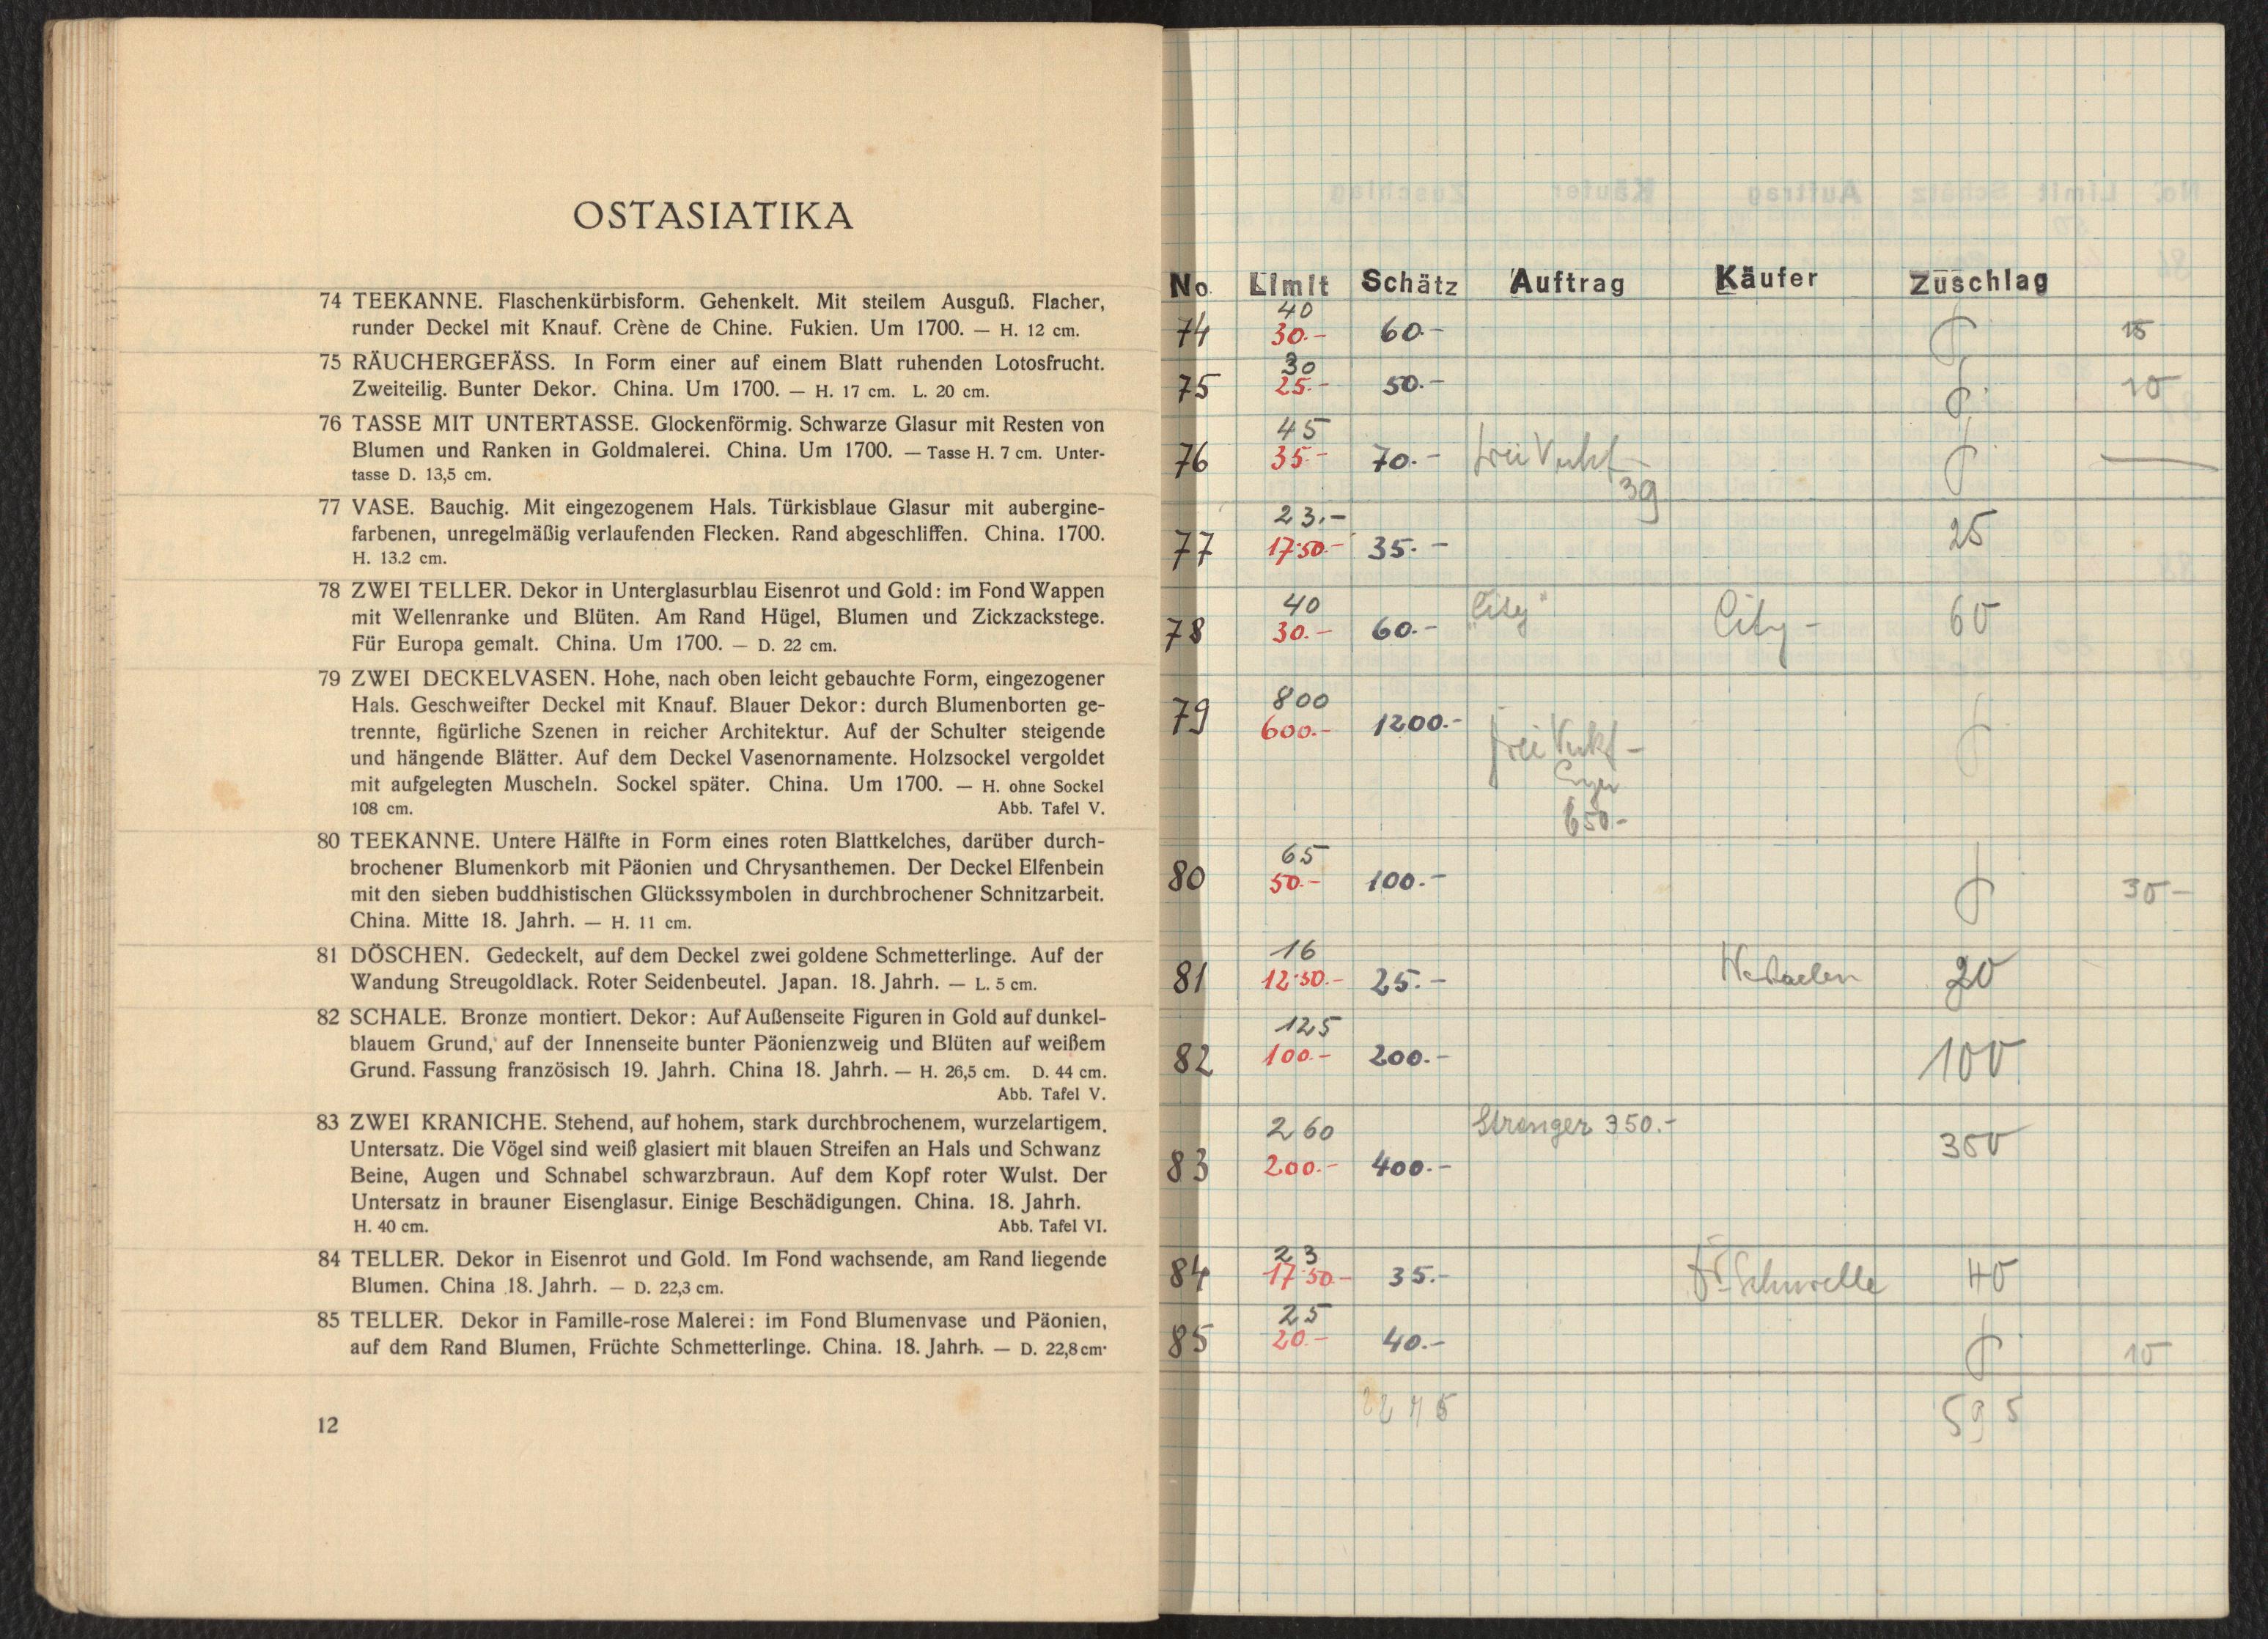 OSTASIATIKA
74 TEEKANNE. Flaschenkürbisform. Gehenkelt. Mit steilem Ausguß. Flacher,
runder Deckel mit Knauf. Crène de Chine. Fukien. Um 1700. — H. 12 cm.
75 RÄUCHERGEFÄSS. In Form einer auf einem Blatt ruhenden Lotosfrucht.
Zweiteilig. Bunter Dekor. China. Um 1700. — H. 17 cm. L. 20 cm.
76 TASSE MIT UNTERTASSE. Glockenförmig. Schwarze Glasur mit Resten von
Blumen und Ranken in Goldmalerei. China. Um 1700. — Tasse H. 7 cm. Unter-
tasse D. 13,5 cm.
77 VASE. Bauchig. Mit eingezogenem Hals. Türkisblaue Glasur mit aubergine-
farbenen, unregelmäßig verlaufenden Flecken. Rand abgeschliffen. China. 1700.
H. 13.2 cm.
78 ZWEI TELLER. Dekor in Unterglasurblau Eisenrot und Gold: im Fond Wappen
mit Wellenranke und Blüten. Am Rand Hügel, Blumen und Zickzackstege.
Für Europa gemalt. China. Um 1700. — D. 22 cm.
79 ZWEI DECKELVASEN. Hohe, nach oben leicht gebauchte Form, eingezogener
Hals. Geschweifter Deckel mit Knauf. Blauer Dekor: durch Blumenborten ge-
trennte, figürliche Szenen in reicher Architektur. Auf der Schulter steigende
und hängende Blätter. Auf dem Deckel Vasenornamente. Holzsockel vergoldet
mit aufgelegten Muscheln. Sockel später. China. Um 1700. — H. ohne Sockel
108 cm. Abb. Tafel V.
80 TEEKANNE. Untere Hälfte in Form eines roten Blattkelches, darüber durch-
brochener Blumenkorb mit Päonien und Chrysanthemen. Der Deckel Elfenbein
mit den sieben buddhistischen Glückssymbolen in durchbrochener Schnitzarbeit.
China. Mitte 18. Jahrh. — H. 11 cm.
81 DÖSCHEN. Gedeckelt, auf dem Deckel zwei goldene Schmetterlinge. Auf der
Wandung Streugoldlack. Roter Seidenbeutel. Japan. 18. Jahrh. — L. 5 cm.
82 SCHALE. Bronze montiert. Dekor: Auf Außenseite Figuren in Gold auf dunkel-
blauem Grund, auf der Innenseite bunter Päonienzweig und Blüten auf weißem
Grund. Fassung französisch 19. Jahrh. China 18. Jahrh. — H. 26,5 cm. D. 44 cm.
Abb. Tafel V.
83 ZWEI KRANICHE. Stehend, auf hohem, stark durchbrochenem, wurzelartigem.
Untersatz. Die Vögel sind weiß glasiert mit blauen Streifen an Hals und Schwanz
Beine, Augen und Schnabel schwarzbraun. Auf dem Kopf roter Wulst. Der
Untersatz in brauner Eisenglasur. Einige Beschädigungen. China. 18. Jahrh.
H. 40 cm. Abb. Tafel VI.
84 TELLER. Dekor in Eisenrot und Gold. Im Fond wachsende, am Rand liegende
Blumen. China 18. Jahrh. — D. 22,3 cm.
85 TELLER. Dekor in Famille-rose Malerei: im Fond Blumenvase und Päonien,
auf dem Rand Blumen, Früchte Schmetterlinge. China. 18. Jahrh. — D. 22,8 cm.
12
No. Limit Schätz Auftrag Käufer Zuschlag
40
74 30.- 60.- 15
30
75 25.- 50.- 10
45
76 35.- 70.- frei
39
23.- 25
77 17.50.- 35.-
40 "City" City - 60
78 30.- 60.-
800
79 600.- 1200.-
frei
650.-
65
80 50.- 100.- 30-
16
81 12.50.- 25.- 20
125
82 100.- 200.- 100
260 Stranger 350.- 350
83 200.- 400.-
23
84 17.50.- 35.- Schwelle 40
25
85 20.- 40.- 10
2275 595